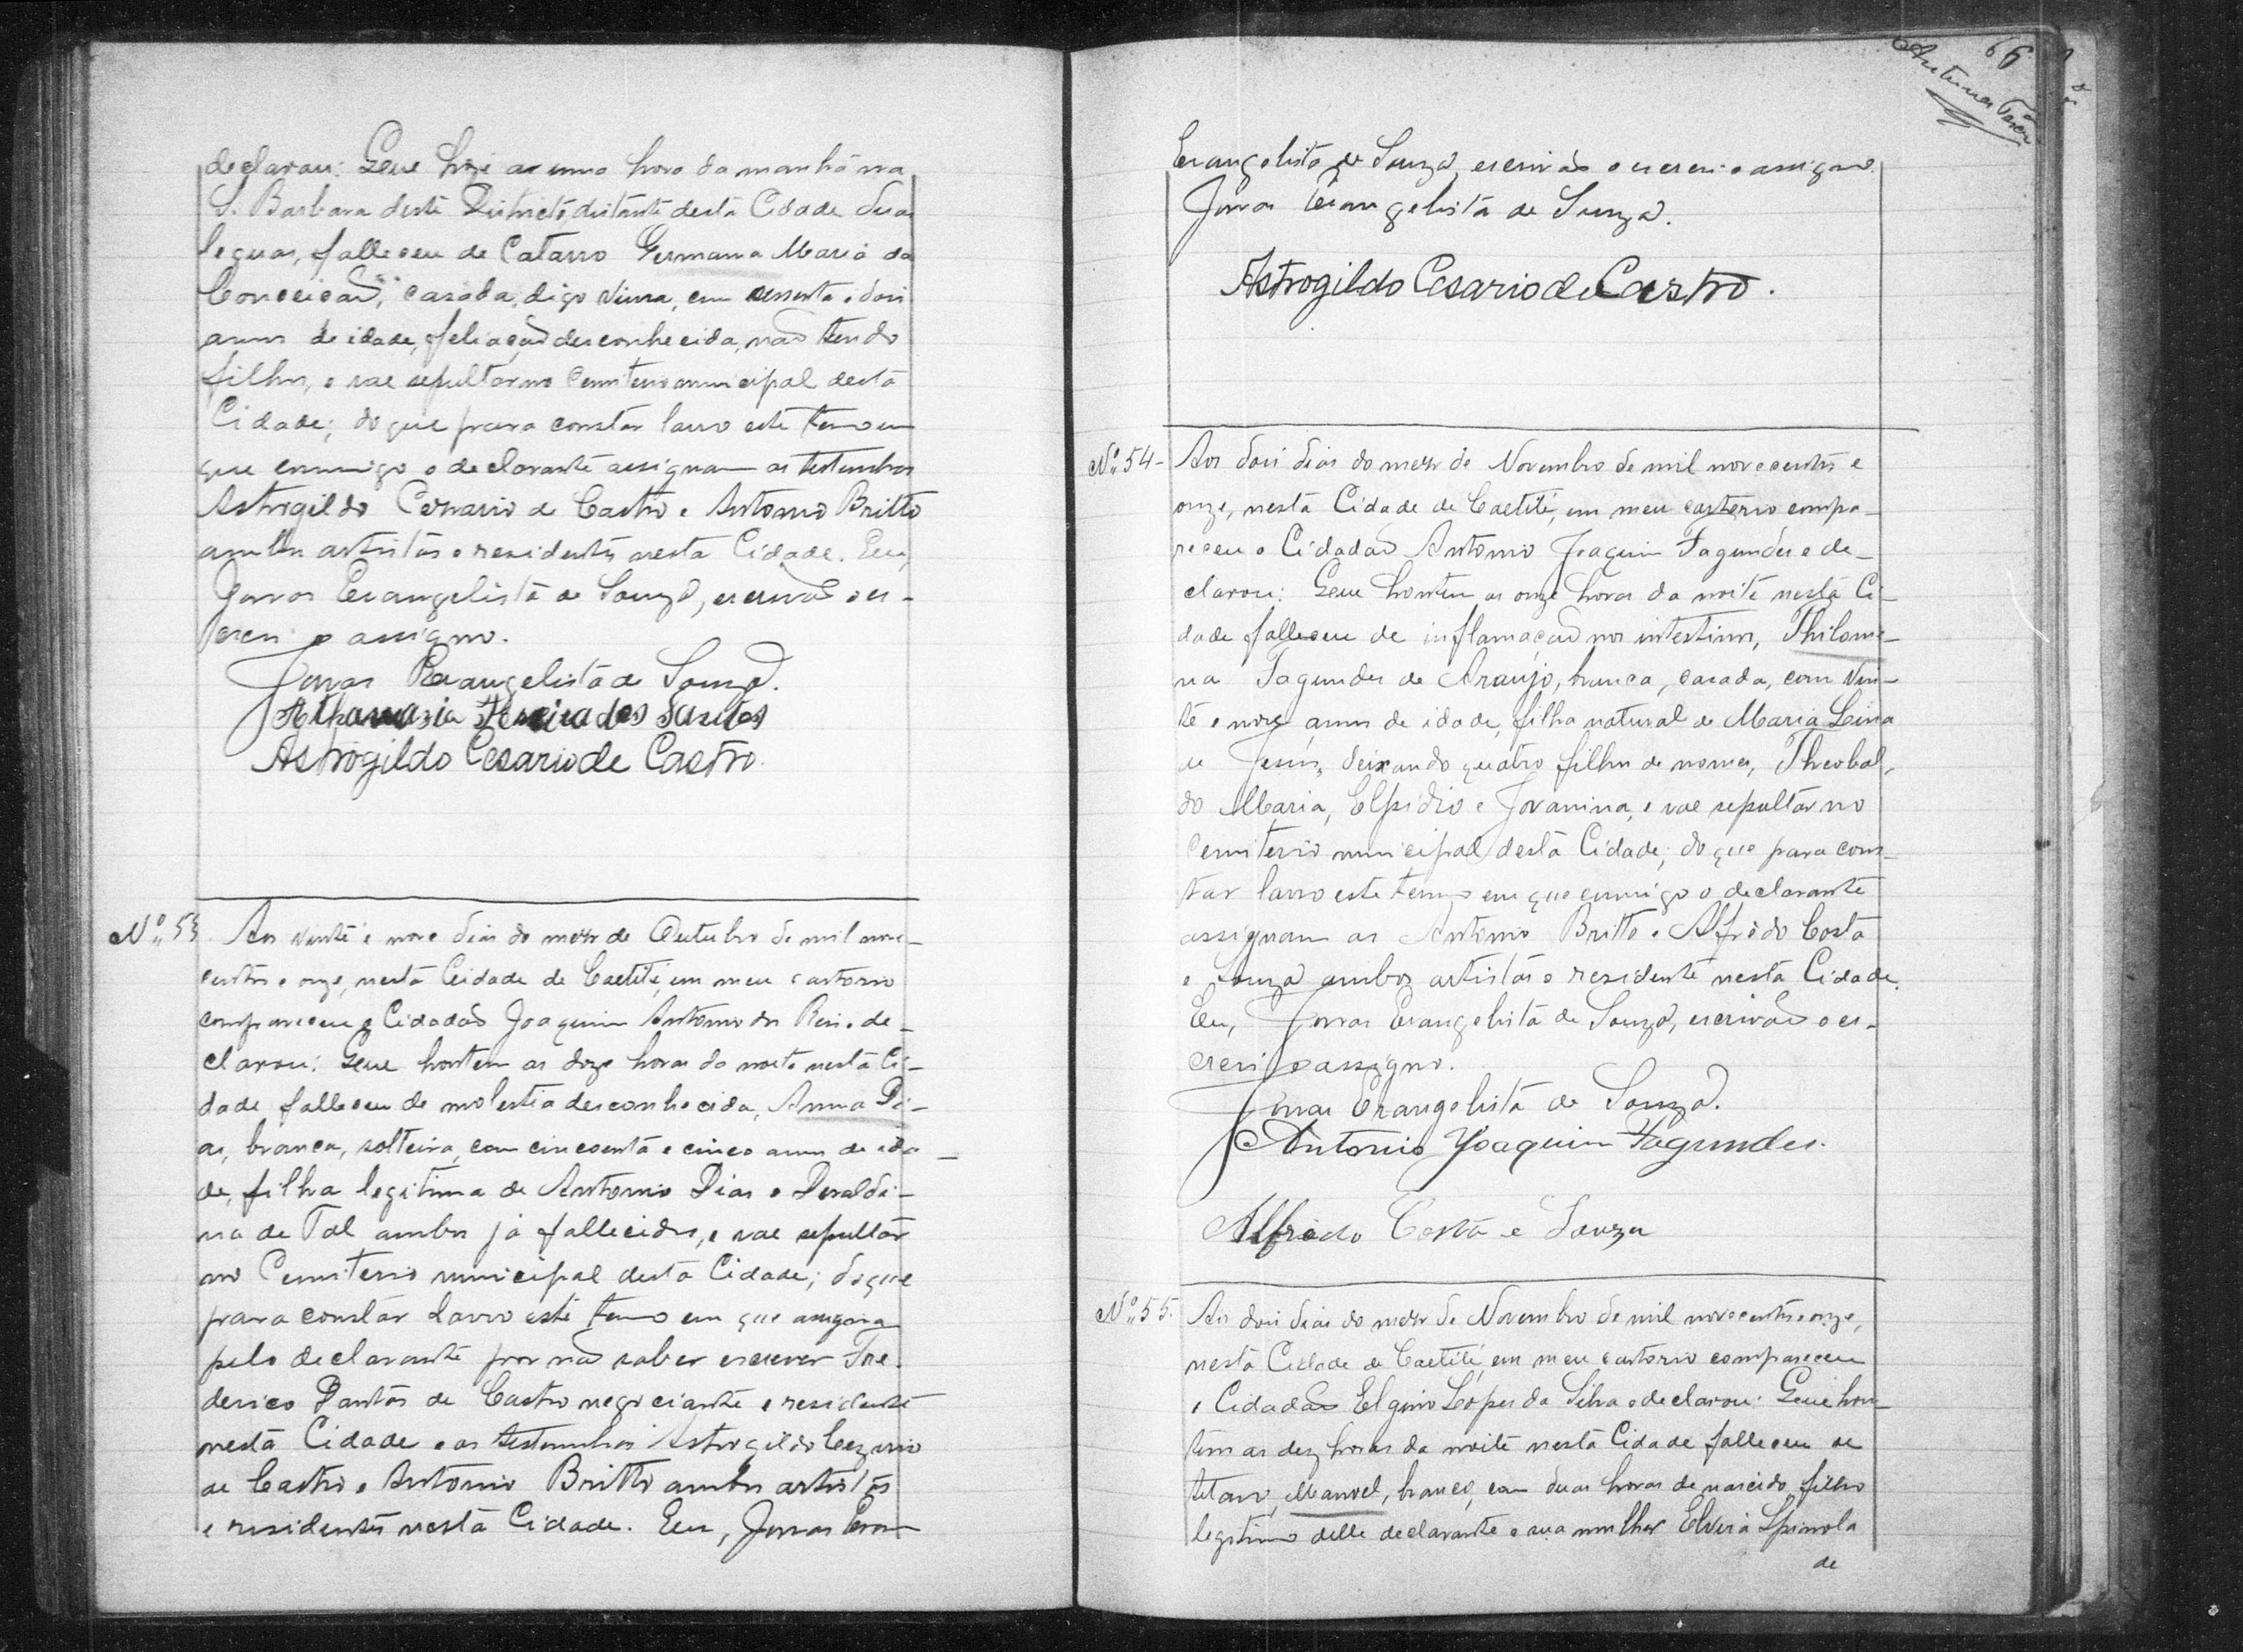 declarou: Que hoje as uma hora da manhã na
S. Barbara deste Districto, distante desta Cidade duas
leguas, falleceu de Catarro Germana Maria da
Conceição, casada, digo viuva, com sessenta e dois
annos de idade, feliação desconhecida, não tendo
filhos, e vae sepultar no Cemiterio municipal desta
Cidade; do que para constar lavro este termo em
que commigo o declarante assignam as testemunhas
Astrogildo Cesario de Castro e Antonio Britto
ambos artistas e residentes nesta Cidade. Eu,
Jonas Evangelista de Souza, escrivão o es-
crevi e assigno.
Jonas Evangelista de Souza.
Athanazia Pereira dos Santos
Astrogildo Cesario de Castro.
Nº 53. Aos vinte e nove dias do mez de Outubro de mil nove-
centos e onze, nesta Cidade de Caetité, em meu cartorio
compareceu o Cidadão Joaquim Antonio dos Reis e de-
clarou: Que hontem as doze horas da noite nesta Ci-
dade falleceu de molestia desconhecida, Anna Di-
as, branca, solteira, com cincoenta e cinco annos de ida-
de, filha legitima de Antonio Dias e Deraldi-
na de Tal ambos já fallecidos, e vae sepultar
no Cemiterio municipal desta Cidade; do que
para constar lavro este termo em que assigna
pelo declarante por não saber escrever Fre-
derico Dantas de Castro negociante e residente
nesta Cidade e as testemunhas Astrogildo Cezario
de Castro e Antonio Britto ambos artistas
e residentes nesta Cidade. Eu, Jonas Evan-
66
Evangelista de Souza, escrivão o escrevi e assigno.
Jonas Evangelista de Souza.
Astrogildo Cesario de Castro.
Nº 54 - Aos dois dias do mez de Novembro de mil novecentos e
onze, nesta Cidade de Caetité, em meu cartorio compa-
receu o Cidadão Antonio Joaquim Fagundes e de-
clarou: Que hontem as onze horas da noite nesta Ci-
dade falleceu de inflamação nos intestinos, Philome-
na Fagundes de Araujo, branca, casada, com vin-
te e nove annos de idade, filha natural de Maria Lina
de Jesus, deixando quatro filhos de nomes, Theobal-
do Maria, Elpidio e Jovanina, e vae sepultar no
Cemiterio municipal desta Cidade; do que para cons-
tar lavro este termo em que commigo o declarante
assignam as Antonio Britto e Alfrêdo Costa
e Souza ambos artistas e residente nesta Cidade.
Eu, Jonas Evangelista de Souza, escrivão o es-
crevi e assigno.
Jonas Evangelista de Souza.
Antonio Joaquim Fagundes.
Alfrêdo Costa e Souza
Nº 55. Aos dois dias do mez de Novembro de mil novecentos e onze,
nesta Cidade de Caetité, em meu cartorio compareceu
o Cidadão Elgino Lopes da Silva e declarou: Que hon-
tem as dez horas da noite nesta Cidade falleceu de
tetano, Manoel, branco, com duas horas de nascido, filho
legitimo delle declarante e sua mulher Elvira Spinola
de